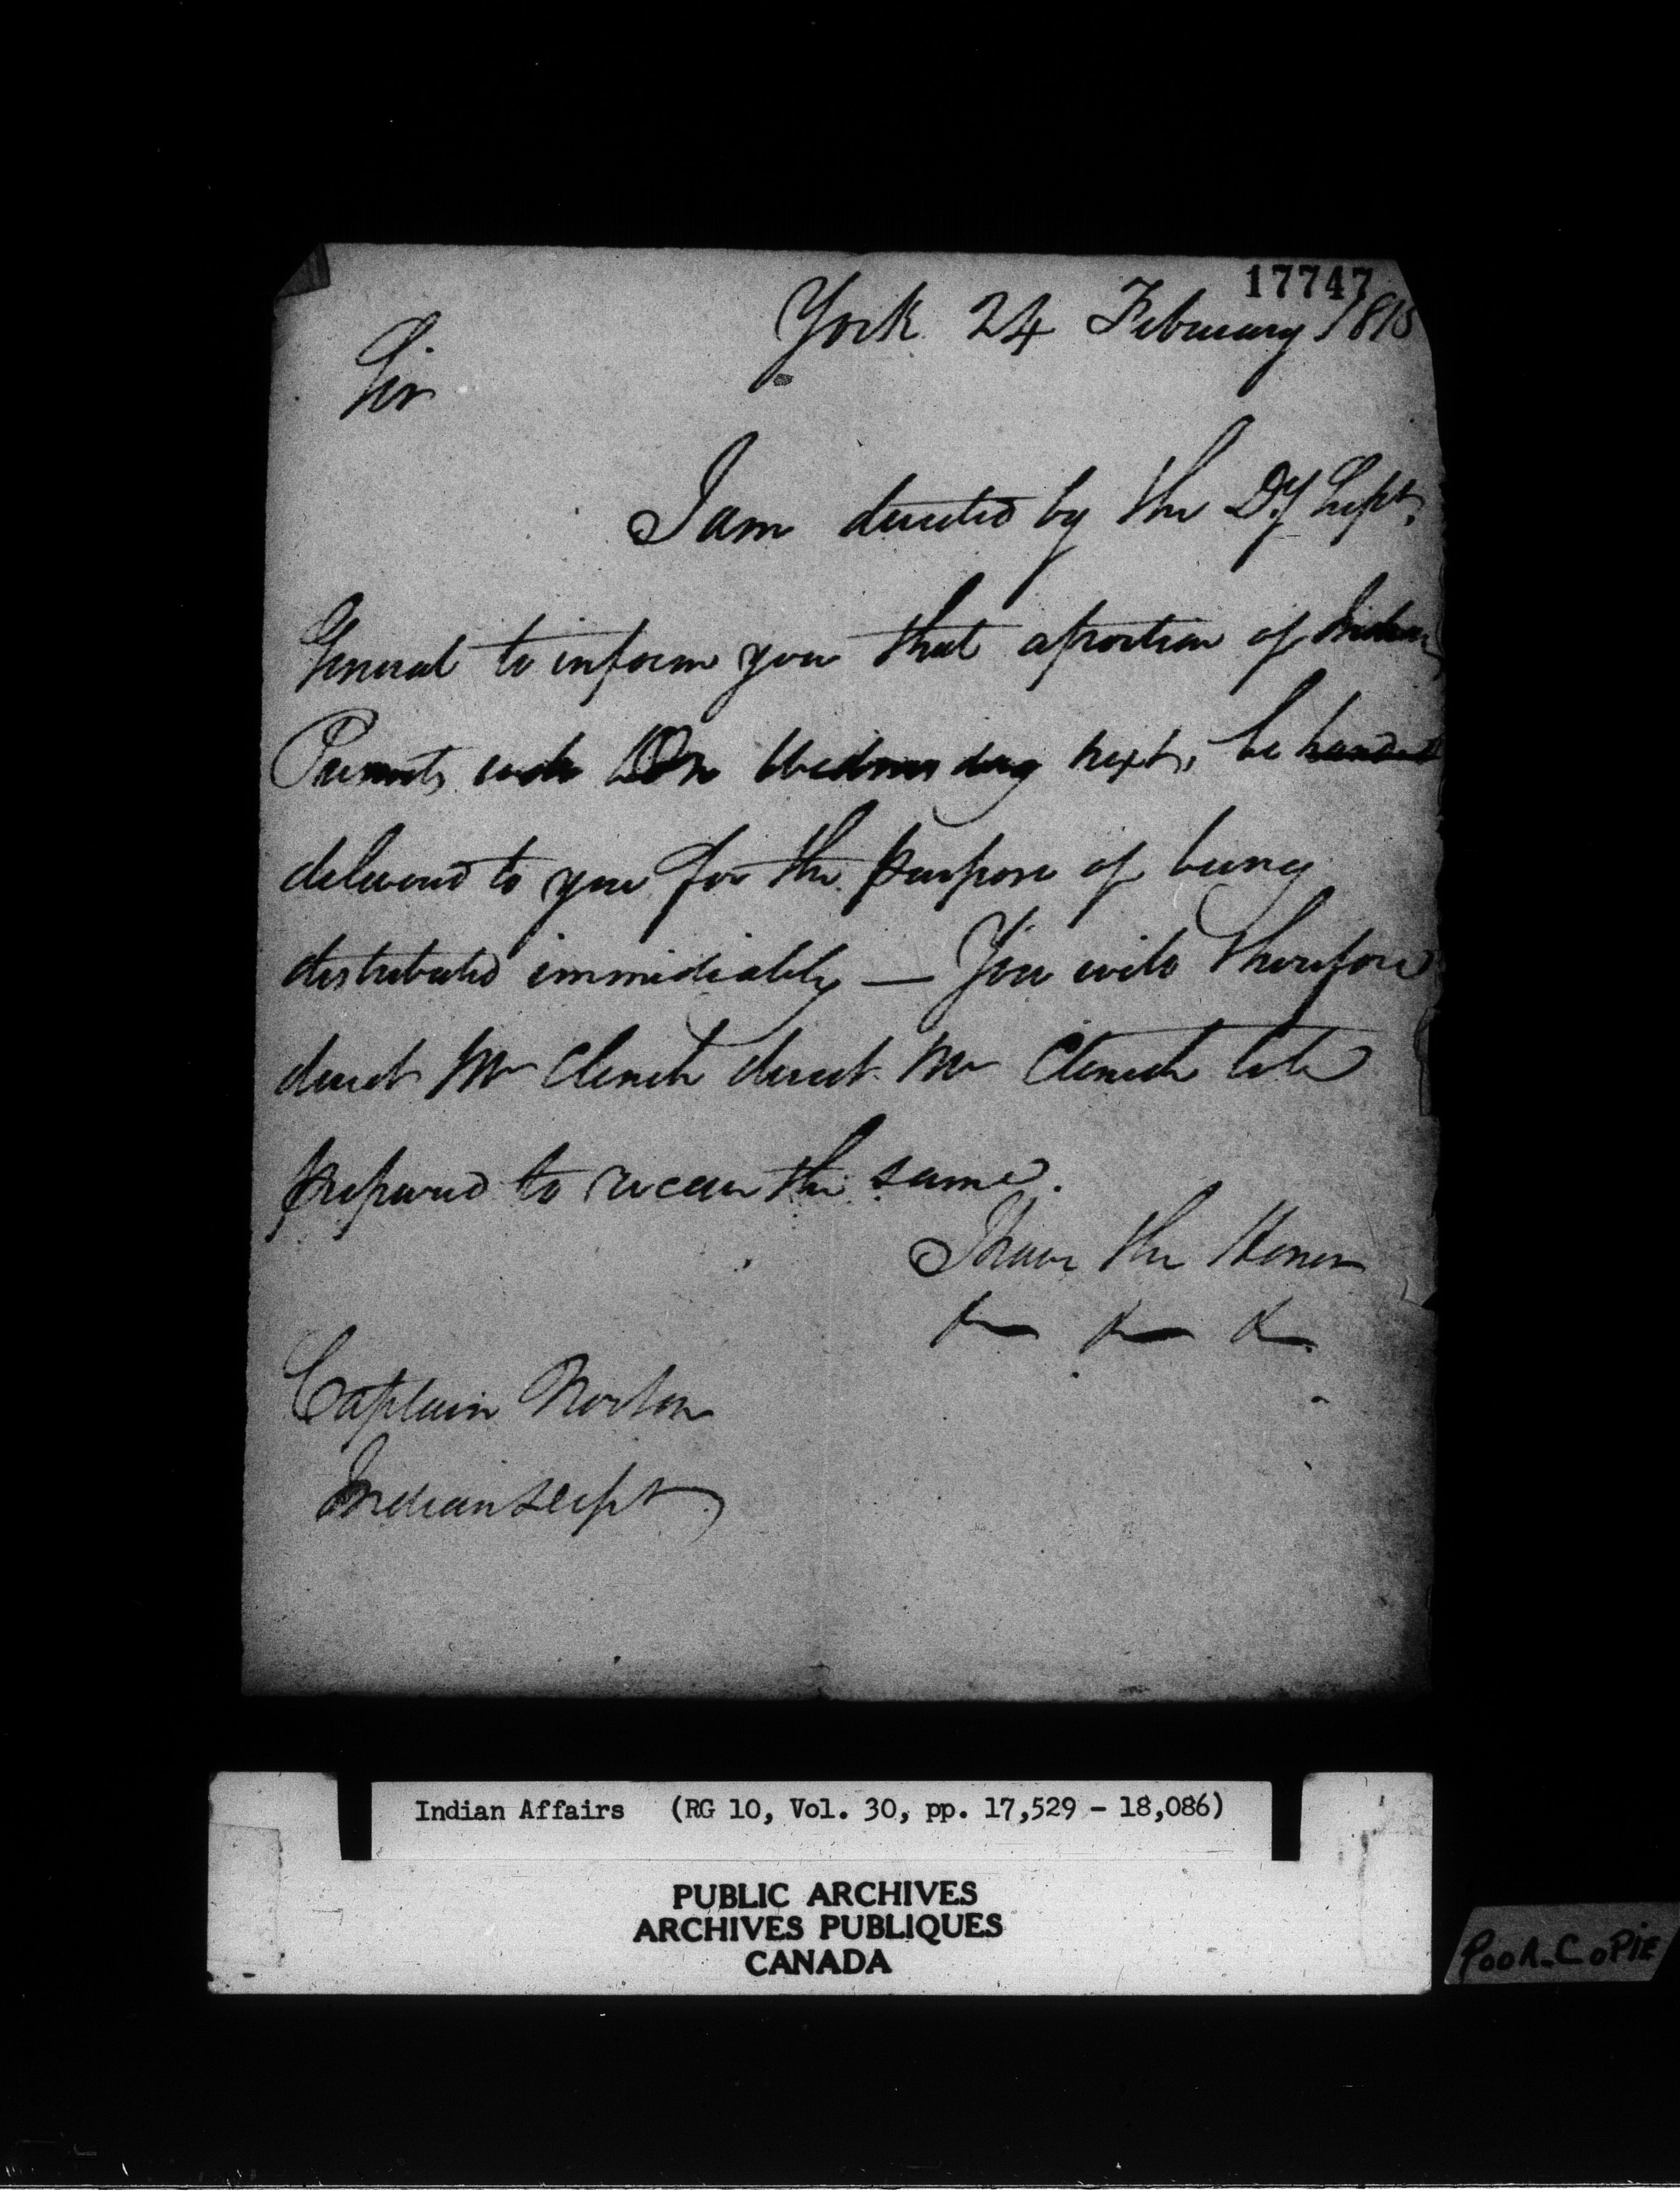 17747
York 24 February 1815
Sir
I am directed by the Dy Supt.
General to inform you that a portion of Indian
Presents will On Wednesday next, be handed
delivered to you for the purpose of being
distributed immidiately — You will therefore
direct Mr Clench direct Mr Clench to be
prepared to receive the same.
I have the Honor
& & &.
Captain Norton
Indian Dept
Indian Affairs (RG 10, Vol. 30, pp. 17,529 - 18,086)
PUBLIC ARCHIVES
ARCHIVES PUBLIQUES
CANADA
POOR-COPIE